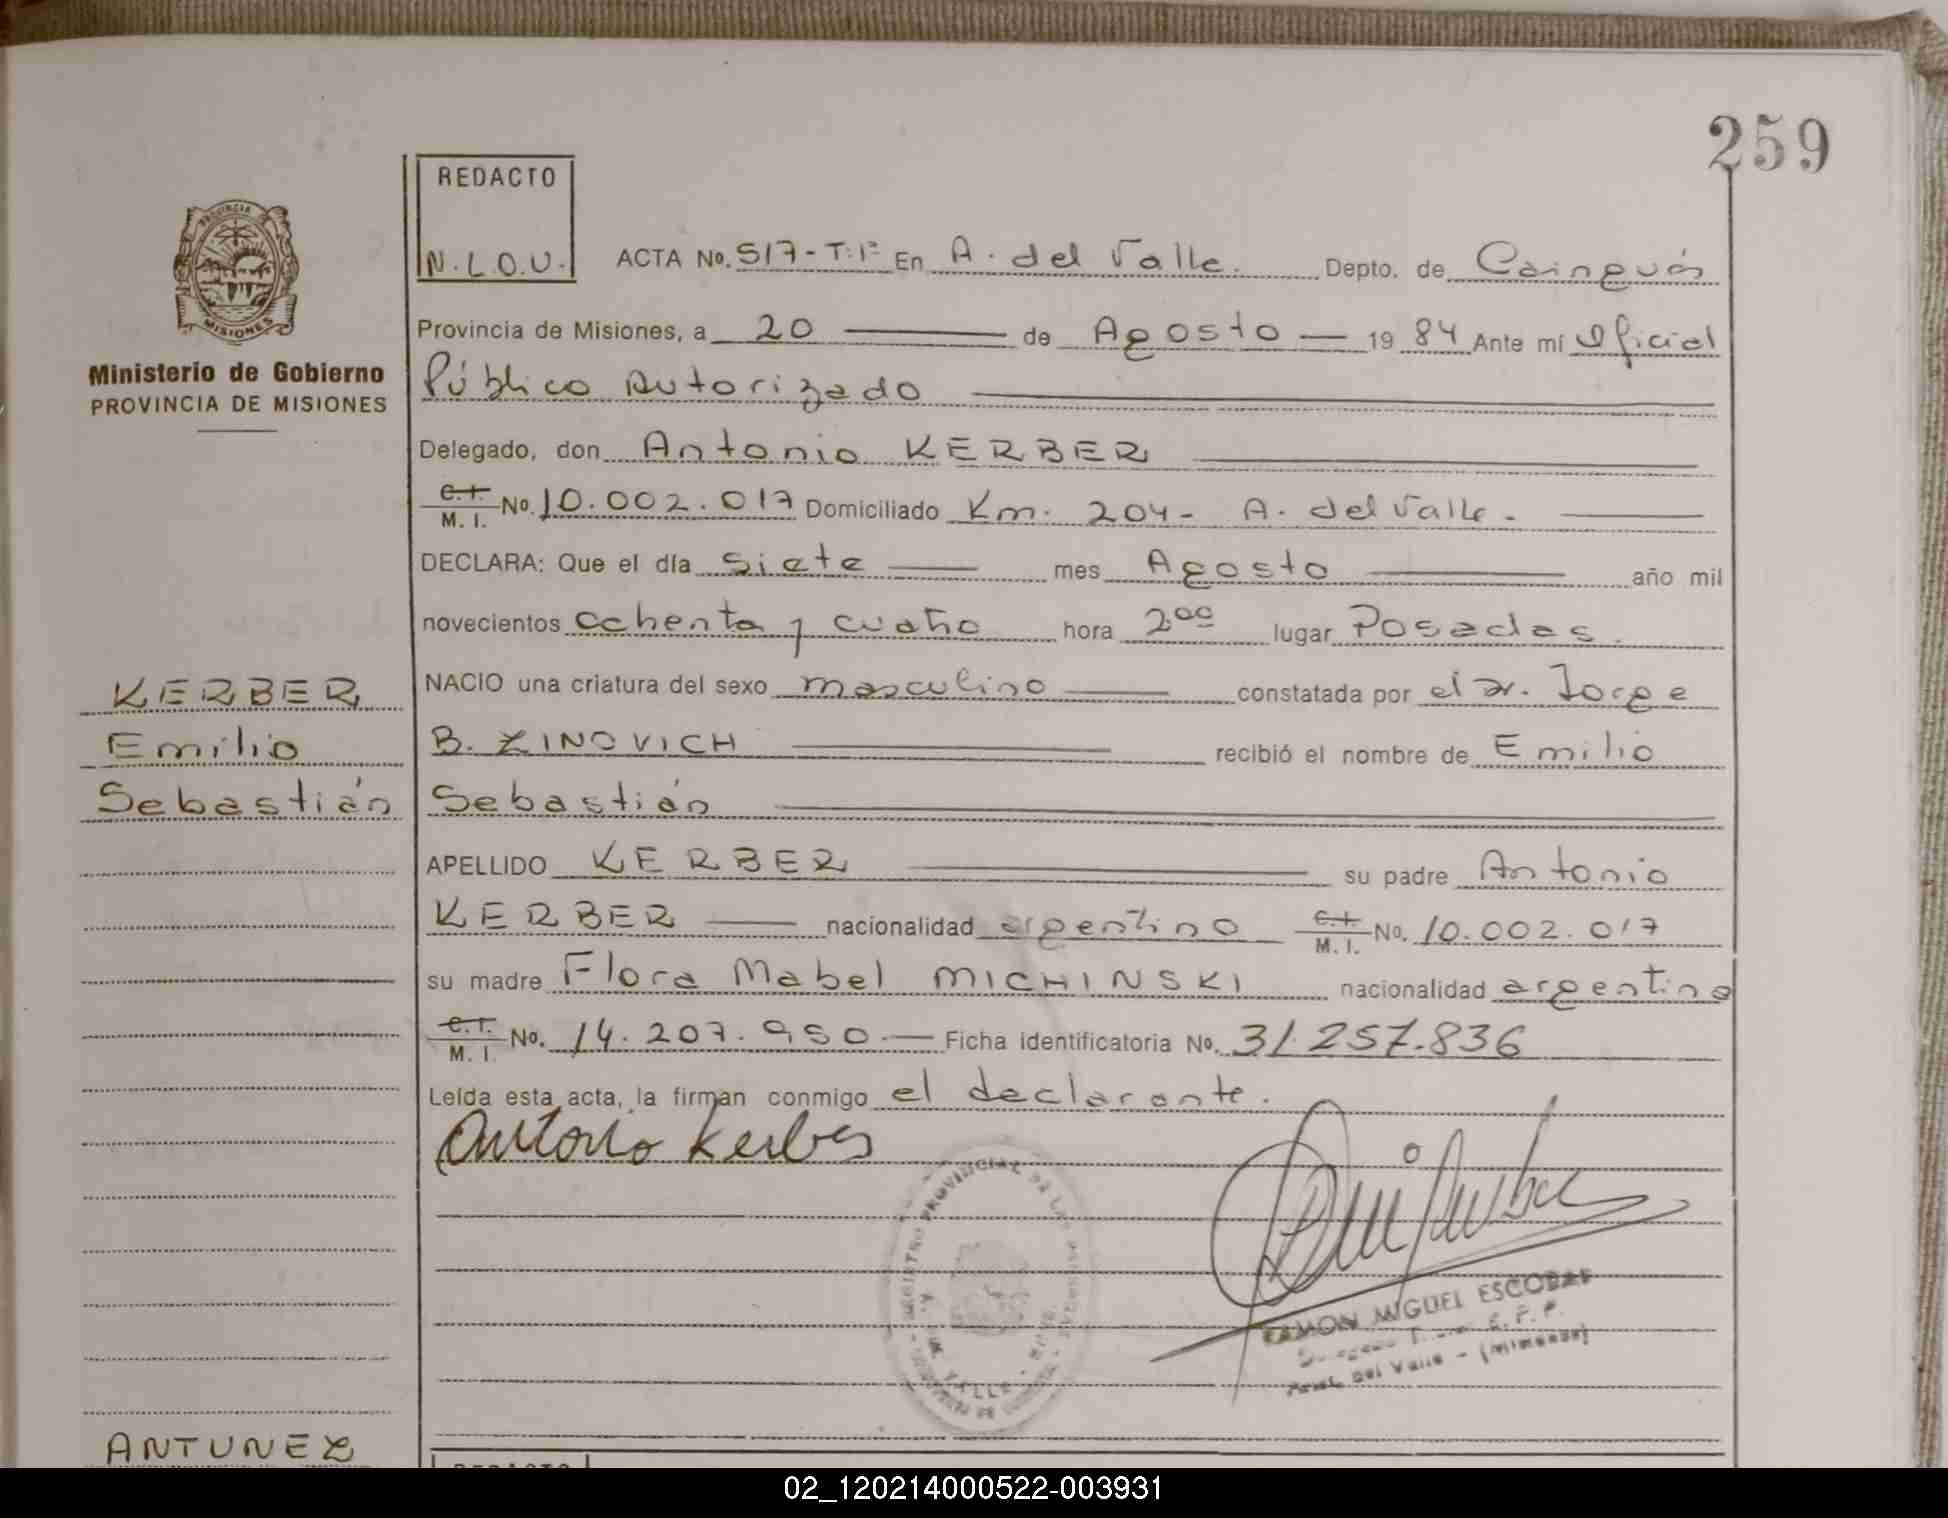 259
REDACTO
N.L.O.U.
PROVINCIA DE
MISIONES
Ministerio de Gobierno
PROVINCIA DE MISIONES
ACTA No. 517-T:1º En A. del Valle. Depto. de Cainguás
Provincia de Misiones, a 20 de Agosto 1984 Ante mí Oficial
Público Autorizado
Delegado, don Antonio KERBER
C.I. M. I. No. 10.002.017 Domiciliado Km. 204- A. del Valle.-
DECLARA: Que el día siete mes Agosto año mil
novecientos ochenta y cuatro hora 2.00 lugar Posadas.
NACIO una criatura del sexo masculino constatada por el Dr. Jorge
B. ZINOVICH recibió el nombre de Emilio
Sebastián
APELLIDO KERBER su padre Antonio
KERBER nacionalidad argentino C.I. M. I. No. 10.002.017
su madre Flora Mabel MICHINSKI nacionalidad argentina
C.I. M. I. No. 14.207.950.- Ficha identificatoria No. 31.257.836
Leída esta acta, la firman conmigo el declarante.
Antonio Kerber
REGISTRO PROVINCIAL DE LAS PERSONAS
VALLE
RAMON MIGUEL ESCOBAR
Del Valle - (Misiones)
KERBER
Emilio
Sebastián
ANTUNEZ
REDACTO
02_120214000522-003931